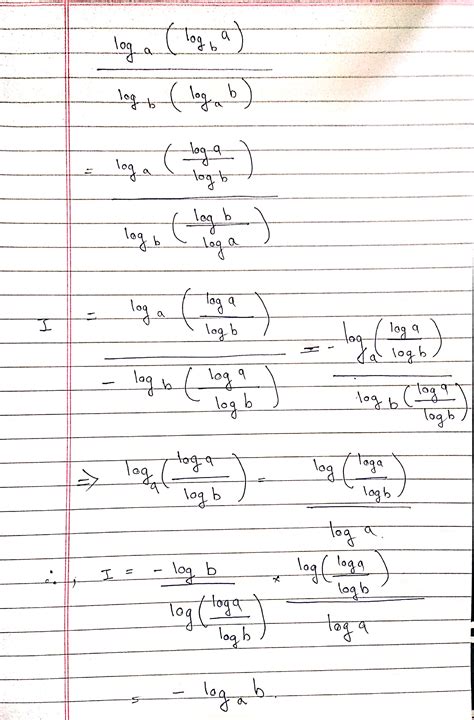 log_a (log_b a)
log_b (log_a b)
= log_a (log a / log b)
log_b (log b / log a)
I = log_a (log a / log b) / - log_b (log a / log b) = - log_a (log a / log b) / log_b (log a / log b)
⇒ log_a (log a / log b) = log (log a / log b) / log a
∴, I = - log b / log (log a / log b) × log (log a / log b) / log a
= - log_a b.